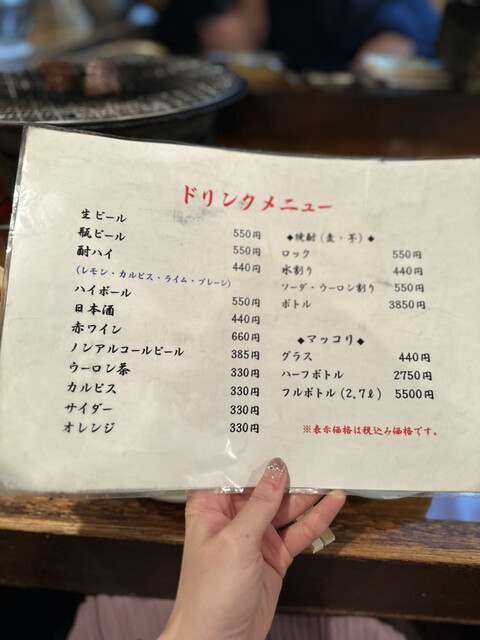 ドリンクメニュー
生ビール 550円
瓶ビール 550円
酎ハイ 440円
(レモン・カルピス・ライム・プレーン)
ハイボール 550円
日本酒 440円
赤ワイン 660円
ノンアルコールビール 385円
ウーロン茶 330円
カルピス 330円
サイダー 330円
オレンジ 330円
◆焼酎(麦・芋)◆
ロック 550円
水割り 440円
ソーダ・ウーロン割り 550円
ボトル 3850円
◆マッコリ◆
グラス 440円
ハーフボトル 2750円
フルボトル(2.7ℓ) 5500円
※表示価格は税込み価格です。